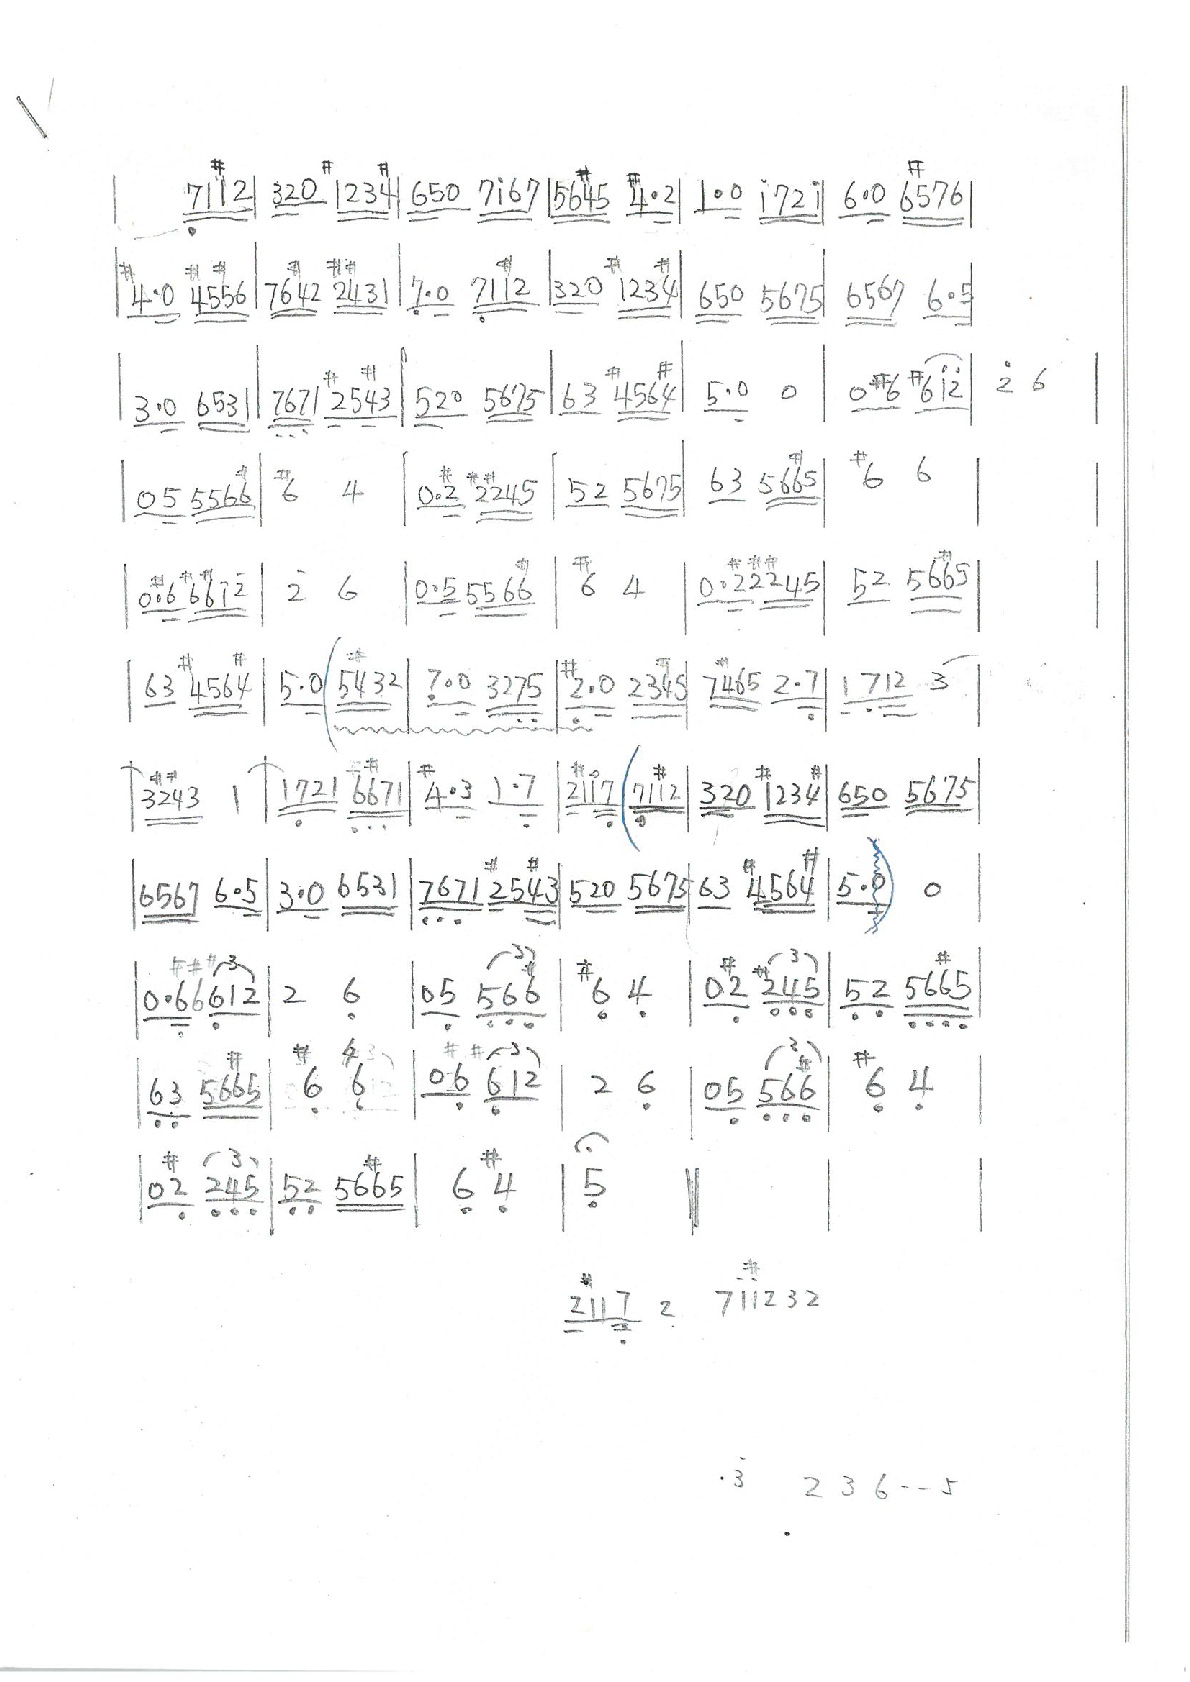 | 7#112 | 320 #123#4 | 650 7i67 | 5#645 #4·2 | 1·0 i72i | 6·0 #6576 |
| #4·0 #4#556 | 76#42 #2#431 | 7·0 7#112 | 320 #123#4 | 650 5675 | 6567 6·5 |
| 3·0 6531 | 7671 #25#43 | 520 5675 | 63 #456#4 | 5·0 0 | 0·#6 #6i2̇ | 2̇ 6 |
| 05 556#6 | #6 4 | 0·#2 #2#245 | 52 5675 | 63 56#65 | #6 6 |
| 0·#6 #6#6i2̇ | 2̇ 6 | 0·5 556#6 | #6 4 | 0·#2#2#245 | 52 56#65 |
| 63 #456#4 | 5·0 ( 5#432 | 7·0 3275 | #2·0 23#45 | 7#465 2·7 | 1712 3 |
| 3#2#43 1 | 1721 #6#671 | #4·3 1·7 | 2#117 ( 7#112 | 320 #123#4 | 650 5675 |
| 6567 6·5 | 3·0 6531 | 7671 #25#43 | 520 5675 | 63 #456#4 | 5·0 ) 0 |
| 0·#6#6 #612 (3) | 2 6 | 05 56#6 (3) | #6 4 | 0#2 #245 (3) | 52 56#65 |
| 63 56#65 | #6 6 | 0#6 #612 (3) | 2 6 | 05 56#6 (3) | #6 4 |
| 0#2 245 (3) | 52 56#65 | 6 #4 | 5 ‖
2#117 2 7#11232
·3̇ 236--5